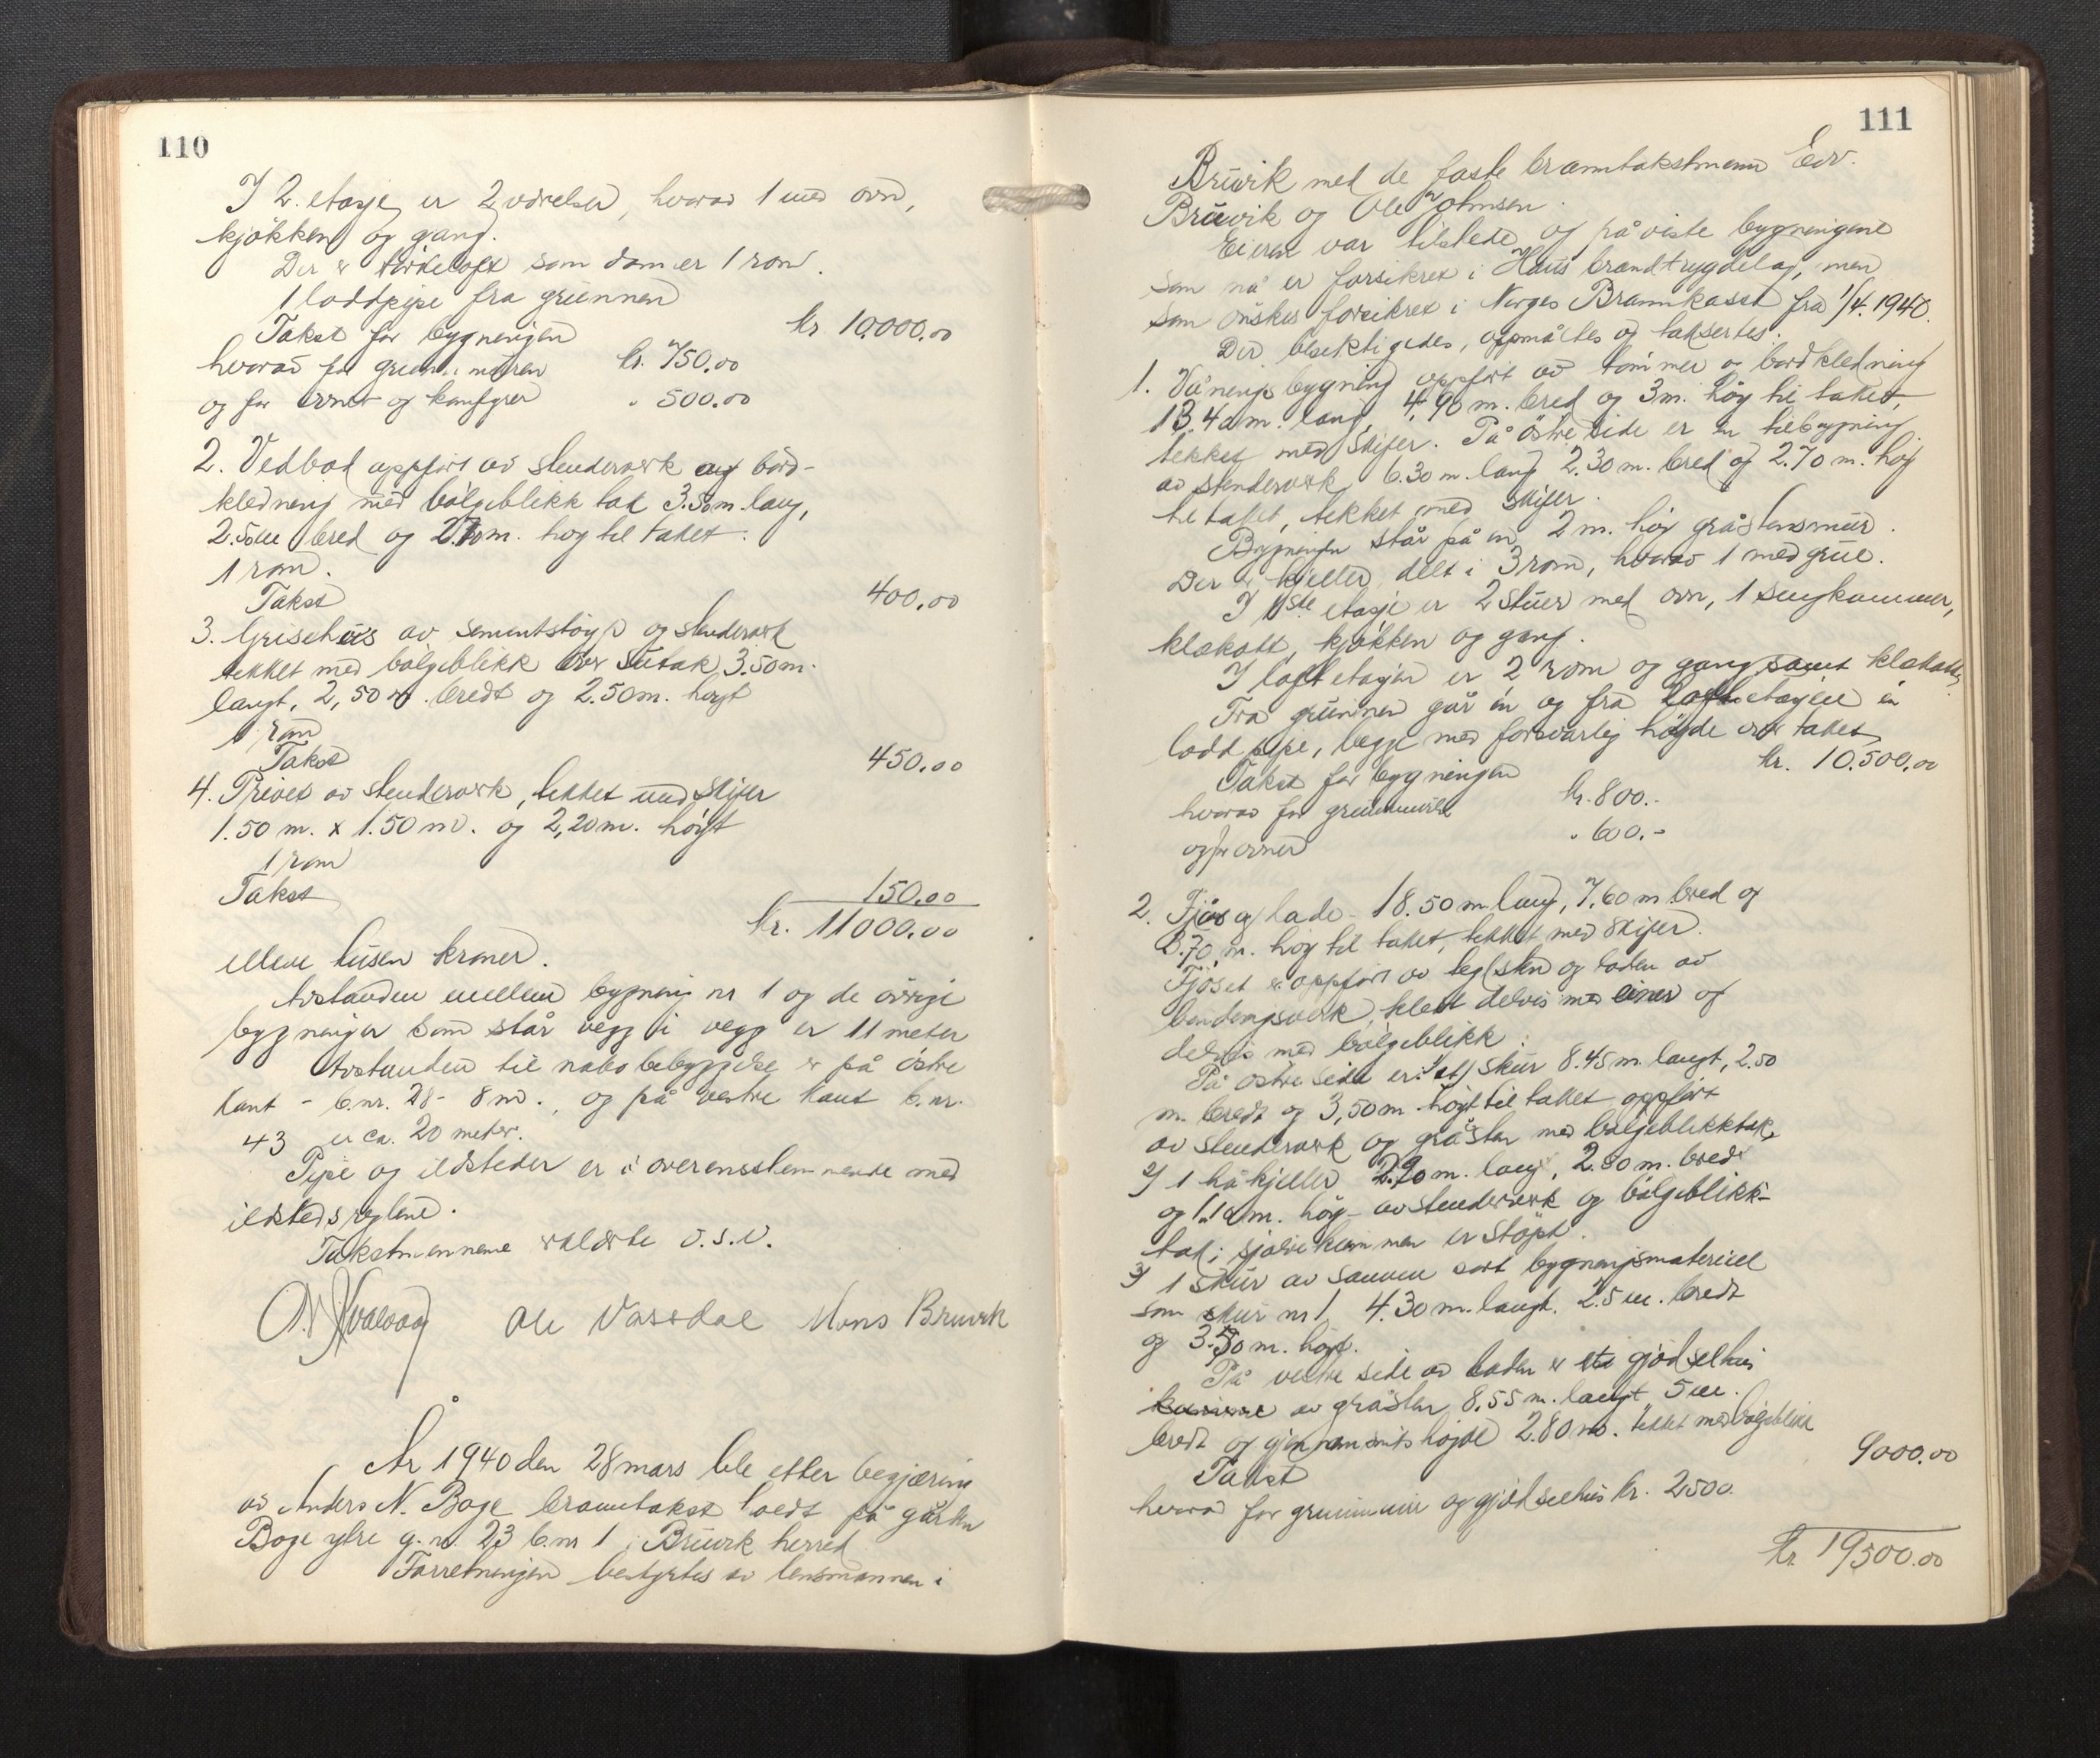 110
I 2. etasje er 2 værelser, hvorav 1 med ovn,
kjøkken og gang.
Der er tørkeloft som danner 1 rom.
1 loddpipe fra grunnen
Takst for bygningen kr 10.000.00
hvorav for grunnmuren kr. 750.00
og for ovner og komfyrer " 500.00
2. Vedbod oppført av stenderverk og bord-
kledning med bølgeblikk tak 3.50 m. lang,
2.5 m bred og 2.10 m. høy til taket.
1 rom.
Takst 400.00
3. Grisehus av sementstøyp og stenderverk
tekket med bølgeblikk over sutak 3.50 m.
langt, 2,50 m. bredt og 2.50 m. høgt
1 rom
Takst 450.00
4. Privet av stenderverk, tekket med skifer
1.50 m. x 1.50 m. og 2,20 m. høgt
1 rom
Takst 150.00
kr. 11000.00
elleve tusen kroner.
Avstanden mellem bygning nr 1 og de øvrige
bygninger som står vegg i vegg er 11 meter
Avstanden til nabobebyggelse er på østre
kant - b.nr. 28 - 8 m. og på vestre kant b.nr.
43 er ca. 20 meter.
Pipe og ildsteder er i overensstemmende med
ildstedsreglene.
Takstmennene erklærte o.s.v.
Ole Vassdal Mons Bruvik
År 1940 den 28 mars ble etter begjæring
av Anders N. Boge branntakst holdt på garden
Boge ytre g.nr. 23 b.nr 1 i Bruvik herred
Forretningen bestyrtes av lensmannen i
111
Bruvik med de faste branntakstmenn Edv.
Bruvik og Ole Johnsen.
Eieren var tilstede og påviste bygningene
som nå er forsikret i Haus brandtrygdelag, men
som ønskes forsikret i Norges Brannkasse fra 1/4. 1940.
Der besiktigedes, oppmåltes og taksertes:
1. Våningsbygning oppført av tømmer og bordkledning
13.40 m. lang, 4,90 m. bred og 3 m. høg til taket,
tekket med skifer. På østre side er en tilbygning
av stenderverk 6.30 m. lang 2.30 m. bred og 2.70 m. høg
til taket, tekket med skifer.
Bygningen står på en 2 m. høy gråstensmur.
Der er kjeller delt i 3 rom, hvorav 1 med grue.
I 1ste etasje er 2 stuer med ovn, 1 sengkammer,
klækott, kjøkken og gang.
I loftetagen er 2 rom og gang samt klækott,
Fra grunnen går én og fra loftetagen én
loddpipe, begge med forsvarlig høgde over taket,
Takst for bygningen kr. 10.500,00
hvorav for grunnmuren kr. 800.-
og for ovner " 600.-
2. Fjøs og lade - 18.50 m lang, 7.60 m bred og
3.70 m. høg til taket, tekket med skifer.
Fjøset er oppført av teglsten og laden av
bendingsverk, kledt delvis med einer og
delvis med bølgeblikk.
På østre side er: 1) et skur 8.45 m. langt, 2.50
m. bredt og 3,50 m. høgt til taket oppført
av stenderverk og gråsten med bølgeblikktak,
2) 1 håkjeller 2.20 m. lang, 2.80 m. bred
og 1.10 m. høg - av stenderverk og bølgeblikk-
tak; sjølve kummen er støpt.
3) 1 skur av samme sort bygningsmateriell
som skur nr 1, 4.30 m. langt. 2.5 m. bredt
og 3.50 m. høgt.
På vestre side av laden er ett gjødselhus
av gråsten 8.55 m. langt 5 m.
bredt og gjennemsnitshøjde 2.80 m. tekket med bølgeblikk
Takst 9000.00
hvorav for grunnmur og gjødselhus kr. 2500.
kr 19500.00